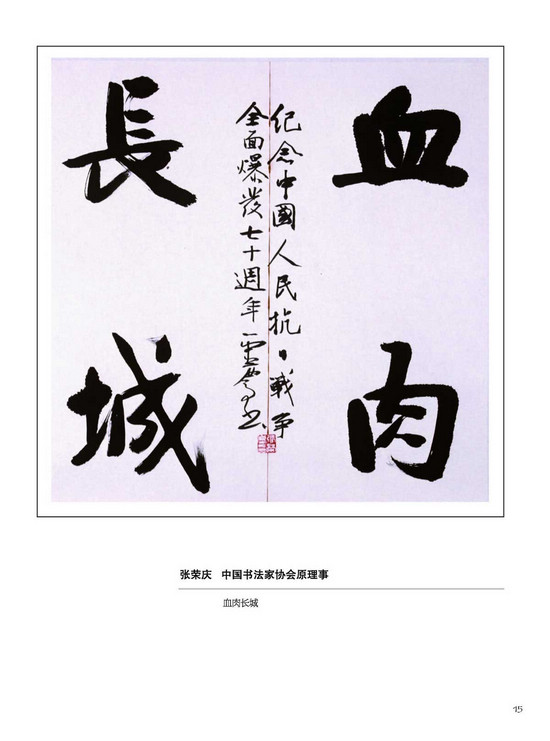 血肉
纪念中國人民抗日戰争
全面爆發七十週年
書
長城
张荣庆 中国书法家协会原理事
血肉长城
15